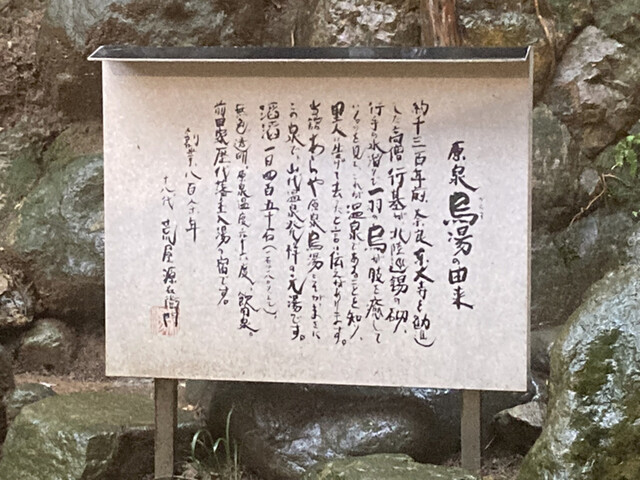 原泉烏湯の由来
約千三百年前、奈良東大寺を創造
した高僧行基が、北陸巡錫の砌、
行手の水溜りに一羽の烏が肢を癒して
いるのを見、これが温泉であることを知り、
里人に告げて去ったと言い伝えあります。
当館あらや原泉烏湯とそがまさに
この泉で、山代温泉発祥の元湯です。
滔滔一日四百五十石
無色透明、原泉温度六十六度、飲用泉。
前田家歴代藩主入湯の宿です。
創業八百余年
十八代 荒屋源右衛門